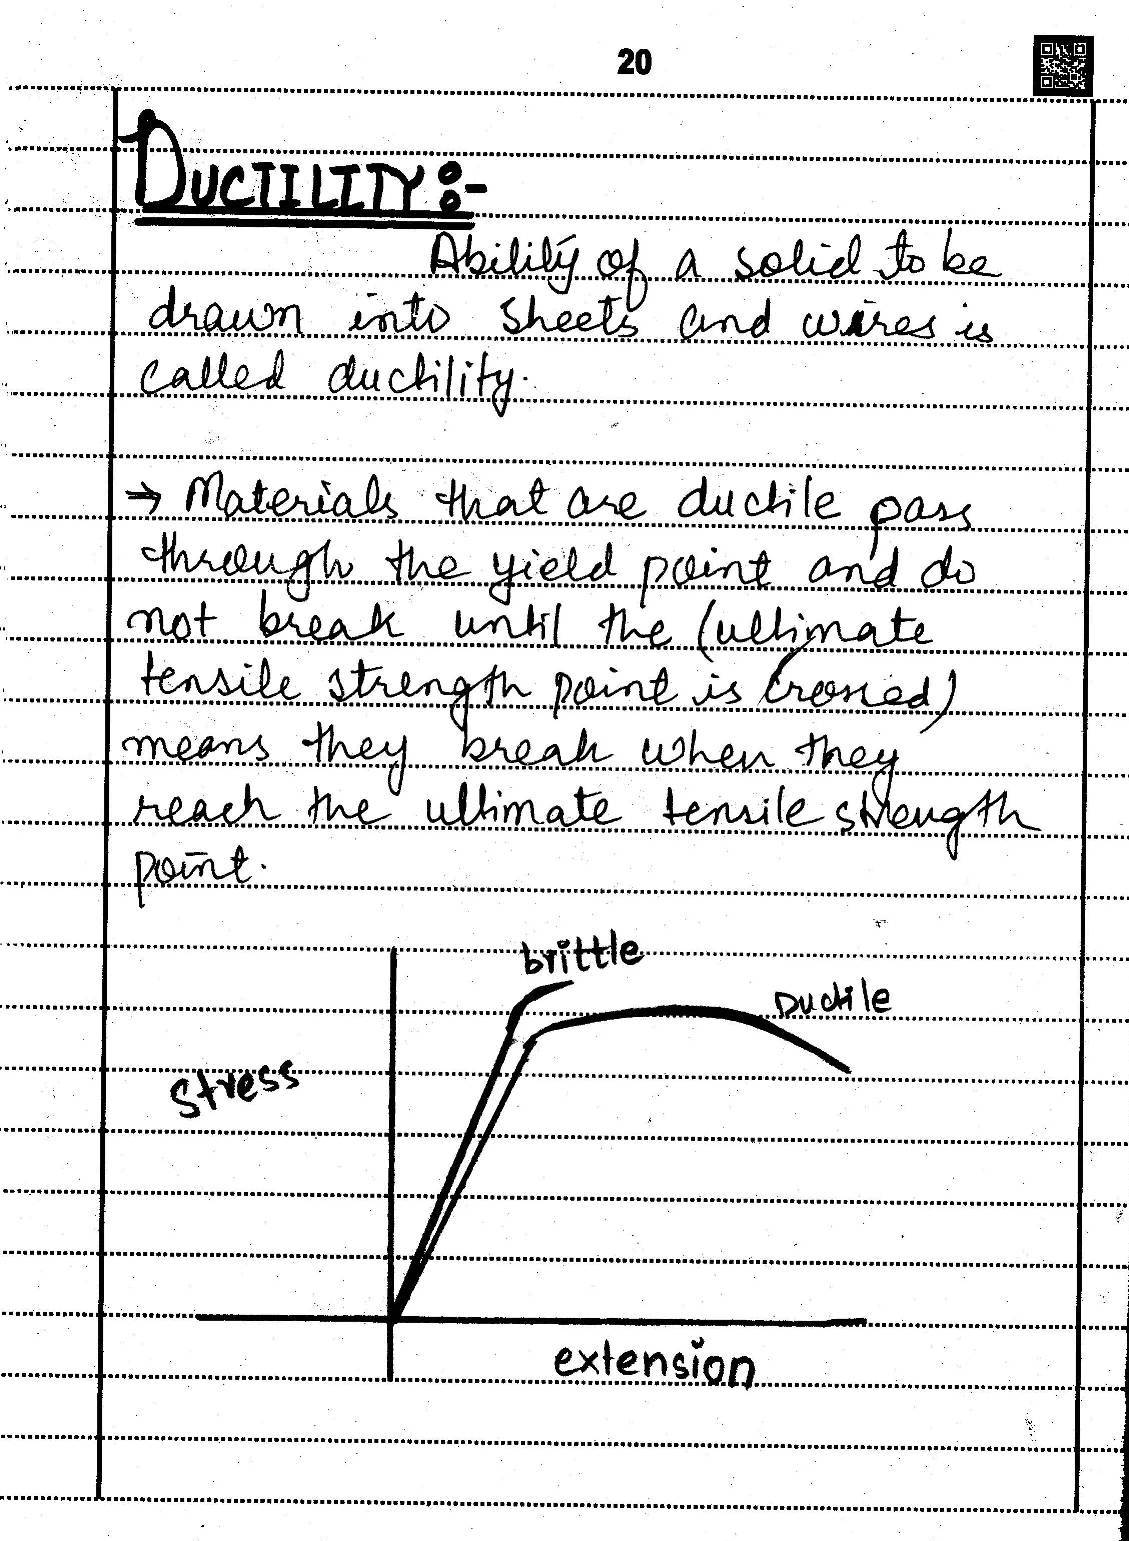 20
DUCTILITY:-
Ability of a solid to be
drawn into sheets and wires is
called ductility.
→ Materials that are ductile pass
through the yield point and do
not break until the (ultimate
tensile strength point is crossed)
means they break when they
reach the ultimate tensile strength
point.
brittle
Ductile
stress
extension